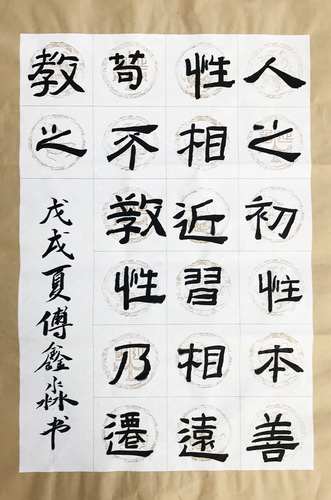 人之初性本善
性相近習相遠
苟不教性乃遷
教之
戊戌夏傅鑫淼书